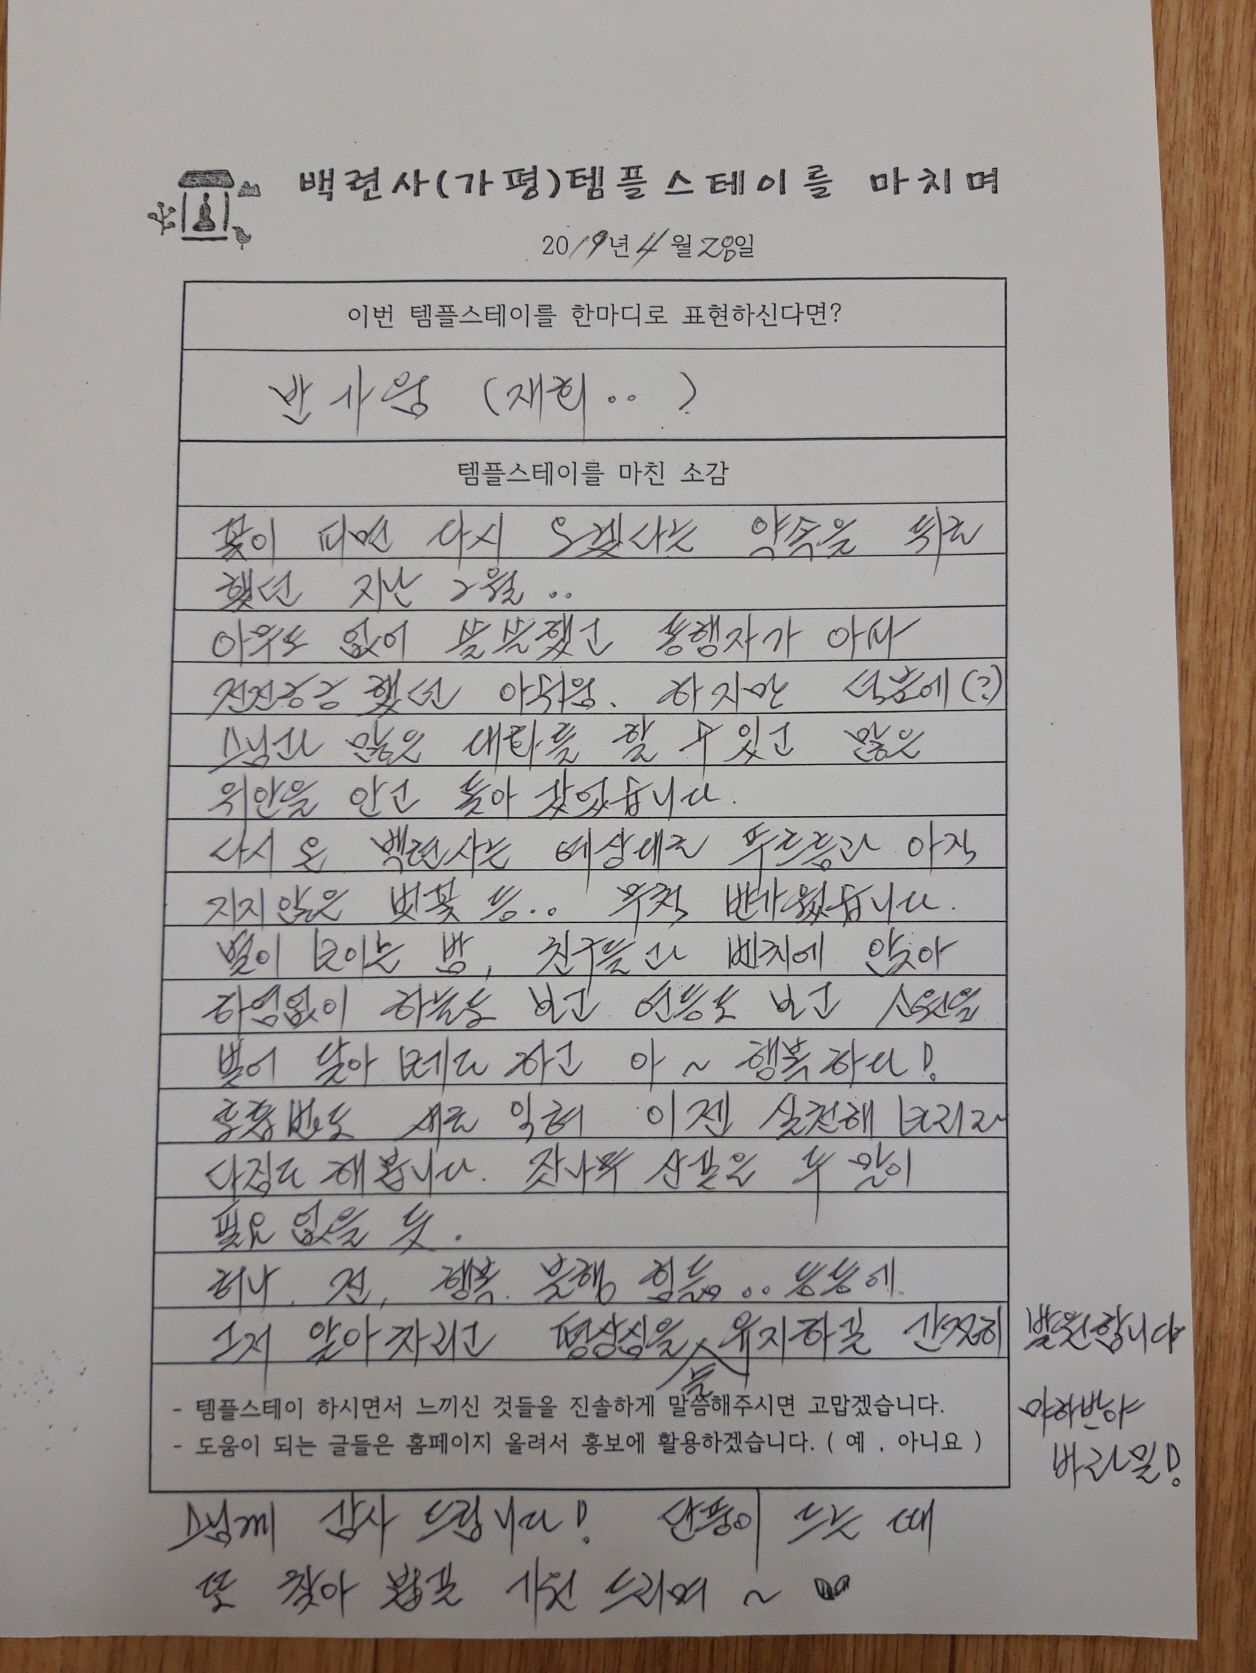 백련사(가평)템플스테이를 마치며
2019년 4월 28일
이번 템플스테이를 한마디로 표현하신다면?
반가움 (재회.. )
템플스테이를 마친 소감
꽃이 피면 다시 오겠다는 약속을 뒤로
했던 지난 2월..
아무도 없어 쓸쓸했고 동행자가 아파
전전긍긍 했던 아쉬움. 하지만 덕분에(?)
스님과 많은 대화를 할 수 있고 많은
위안을 안고 돌아 갔었습니다.
다시 온 백련사는 예상대로 푸르름과 아직
지지않은 벚꽃 등.. 무척 반가웠습니다.
별이 보이는 밤, 친구들과 벤치에 앉아
하염없이 하늘도 보고 연등도 보고 소원을
빌어 달아 보기도 하고 아~ 행복하다!
새로 익혀 이젠 실천해 보리라
다짐도 해봅니다. 잣나무 산길은 두 말이
필요 없을 듯.
허나, 전, 행복. 불행, 힘듦.. 등등에
그저 알아차리고 평상심을 늘 유지하길 간절히 발원합니다
마하반야
바라밀!
- 템플스테이 하시면서 느끼신 것들을 진솔하게 말씀해주시면 고맙겠습니다.
- 도움이 되는 글들은 홈페이지 올려서 홍보에 활용하겠습니다. ( 예 , 아니요 )
스님께 감사 드립니다! 단풍이 드는 때
또 찾아 뵙길 기원 드리며 ~